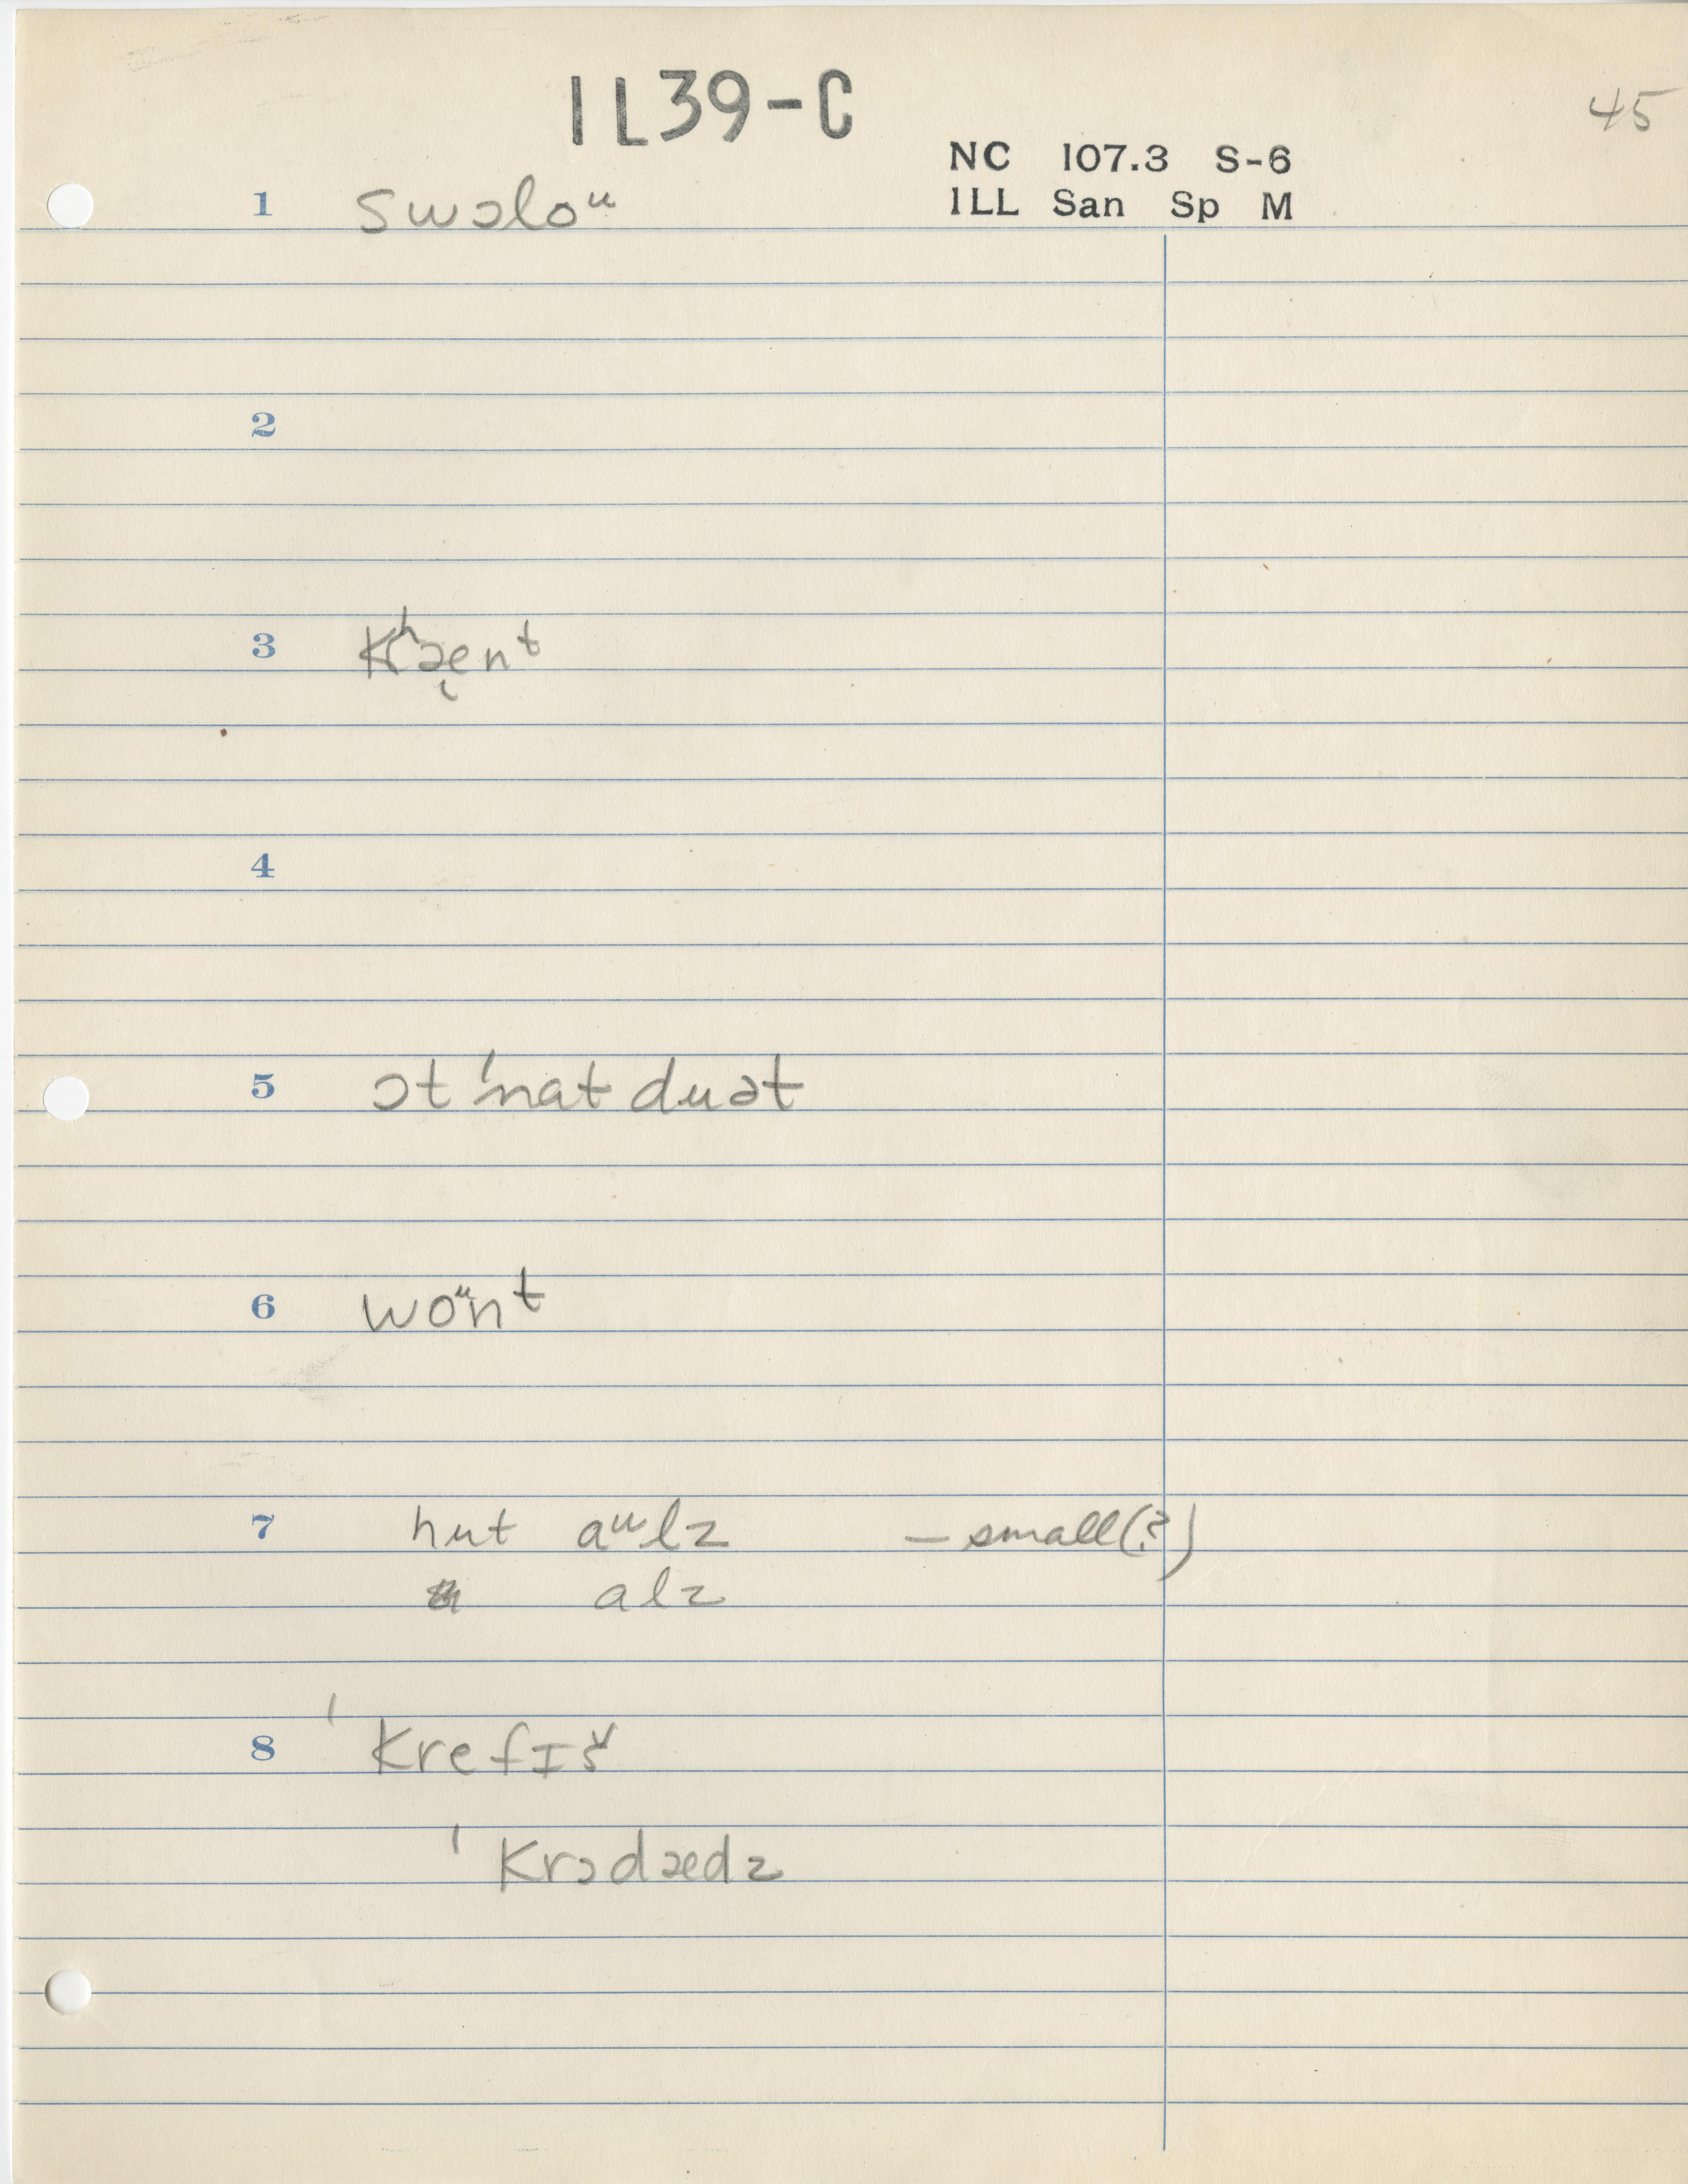 IL39-C
45
NC 107.3 S-6
ILL San Sp M
1 swɔloᵘ
2
3 Kʰæ̨nᵗ
4
5 ɔt ˈnat duət
6 woᵘnᵗ
7 hut aᵘlz – small(?)
alz
8 ˈKrefɪš
ˈKrɔdædz